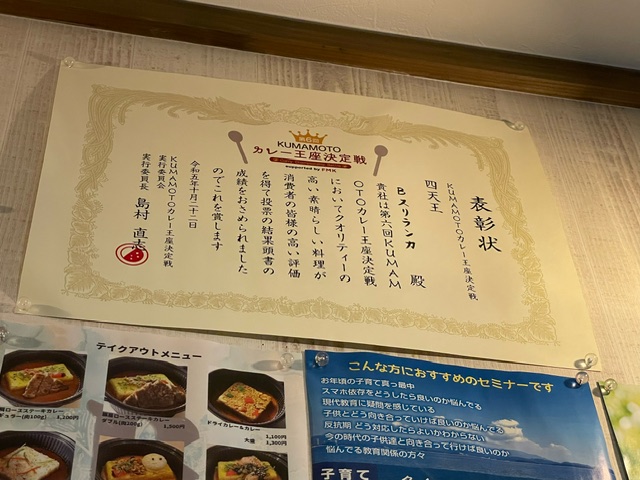 第6回
KUMAMOTO
カレー王座決定戦
supported by FMK
表彰状
KUMAMOTOカレー王座決定戦
四天王
Bスリランカ 殿
貴社は第六回KUMAM
OTOカレー王座決定戦
においてクオリティーの
高い素晴らしい料理が
消費者の皆様の高い評価
を得て投票の結果頭書の
成績をおさめられました
のでこれを賞します
令和五年十月二十二日
KUMAMOTOカレー王座決定戦
実行委員会
実行委員長 島村 直志
テイクアウトメニュー
ロースステーキカレー
(肉100g) 1,200円
ロースステーキカレー
ダブル(肉200g) 1,500円
ドライカレー&カレー
1,100円
大盛 1,300円
こんな方におすすめのセミナーです
お年頃の子育て真っ最中
スマホ依存をどうしたら良いのか悩んでる
現代教育に疑問を感じている
子供とどう向き合っていけば良いのか悩んでる
反抗期 どう対応したらよいかわからない
今の時代の子供達と向き合って行けば良いのか
悩んでる教育関係の方々
子育て